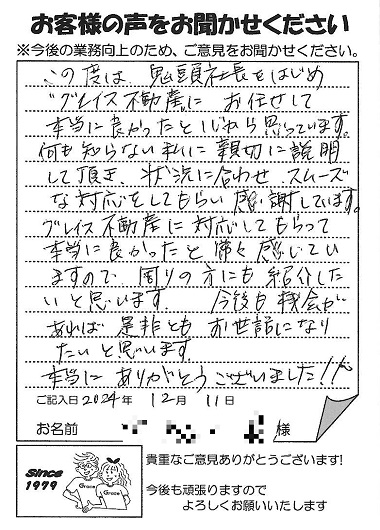 お客様の声をお聞かせください
※今後の業務向上のため、ご意見をお聞かせください。
この度は、鬼頭社長をはじめ
グレイス不動産に お任せして
本当に良かったと心から思っています。
何も知らない私に 親切に説明
して頂き、状況に合わせ スムーズ
な対応をしてもらい 感謝しています。
グレイス不動産に対応してもらって
本当に良かったと 常々感じてい
ますので 周りの方にも 紹介した
いと思います 今後も 機会が
あれば 是非とも お世話になり
たいと思います
本当に ありがとうございました!!
ご記入日 2024年 12月 11日
お名前 様
Since
1979
Grace
Grace
貴重なご意見ありがとうございます!
今後も頑張りますので
よろしくお願いいたします